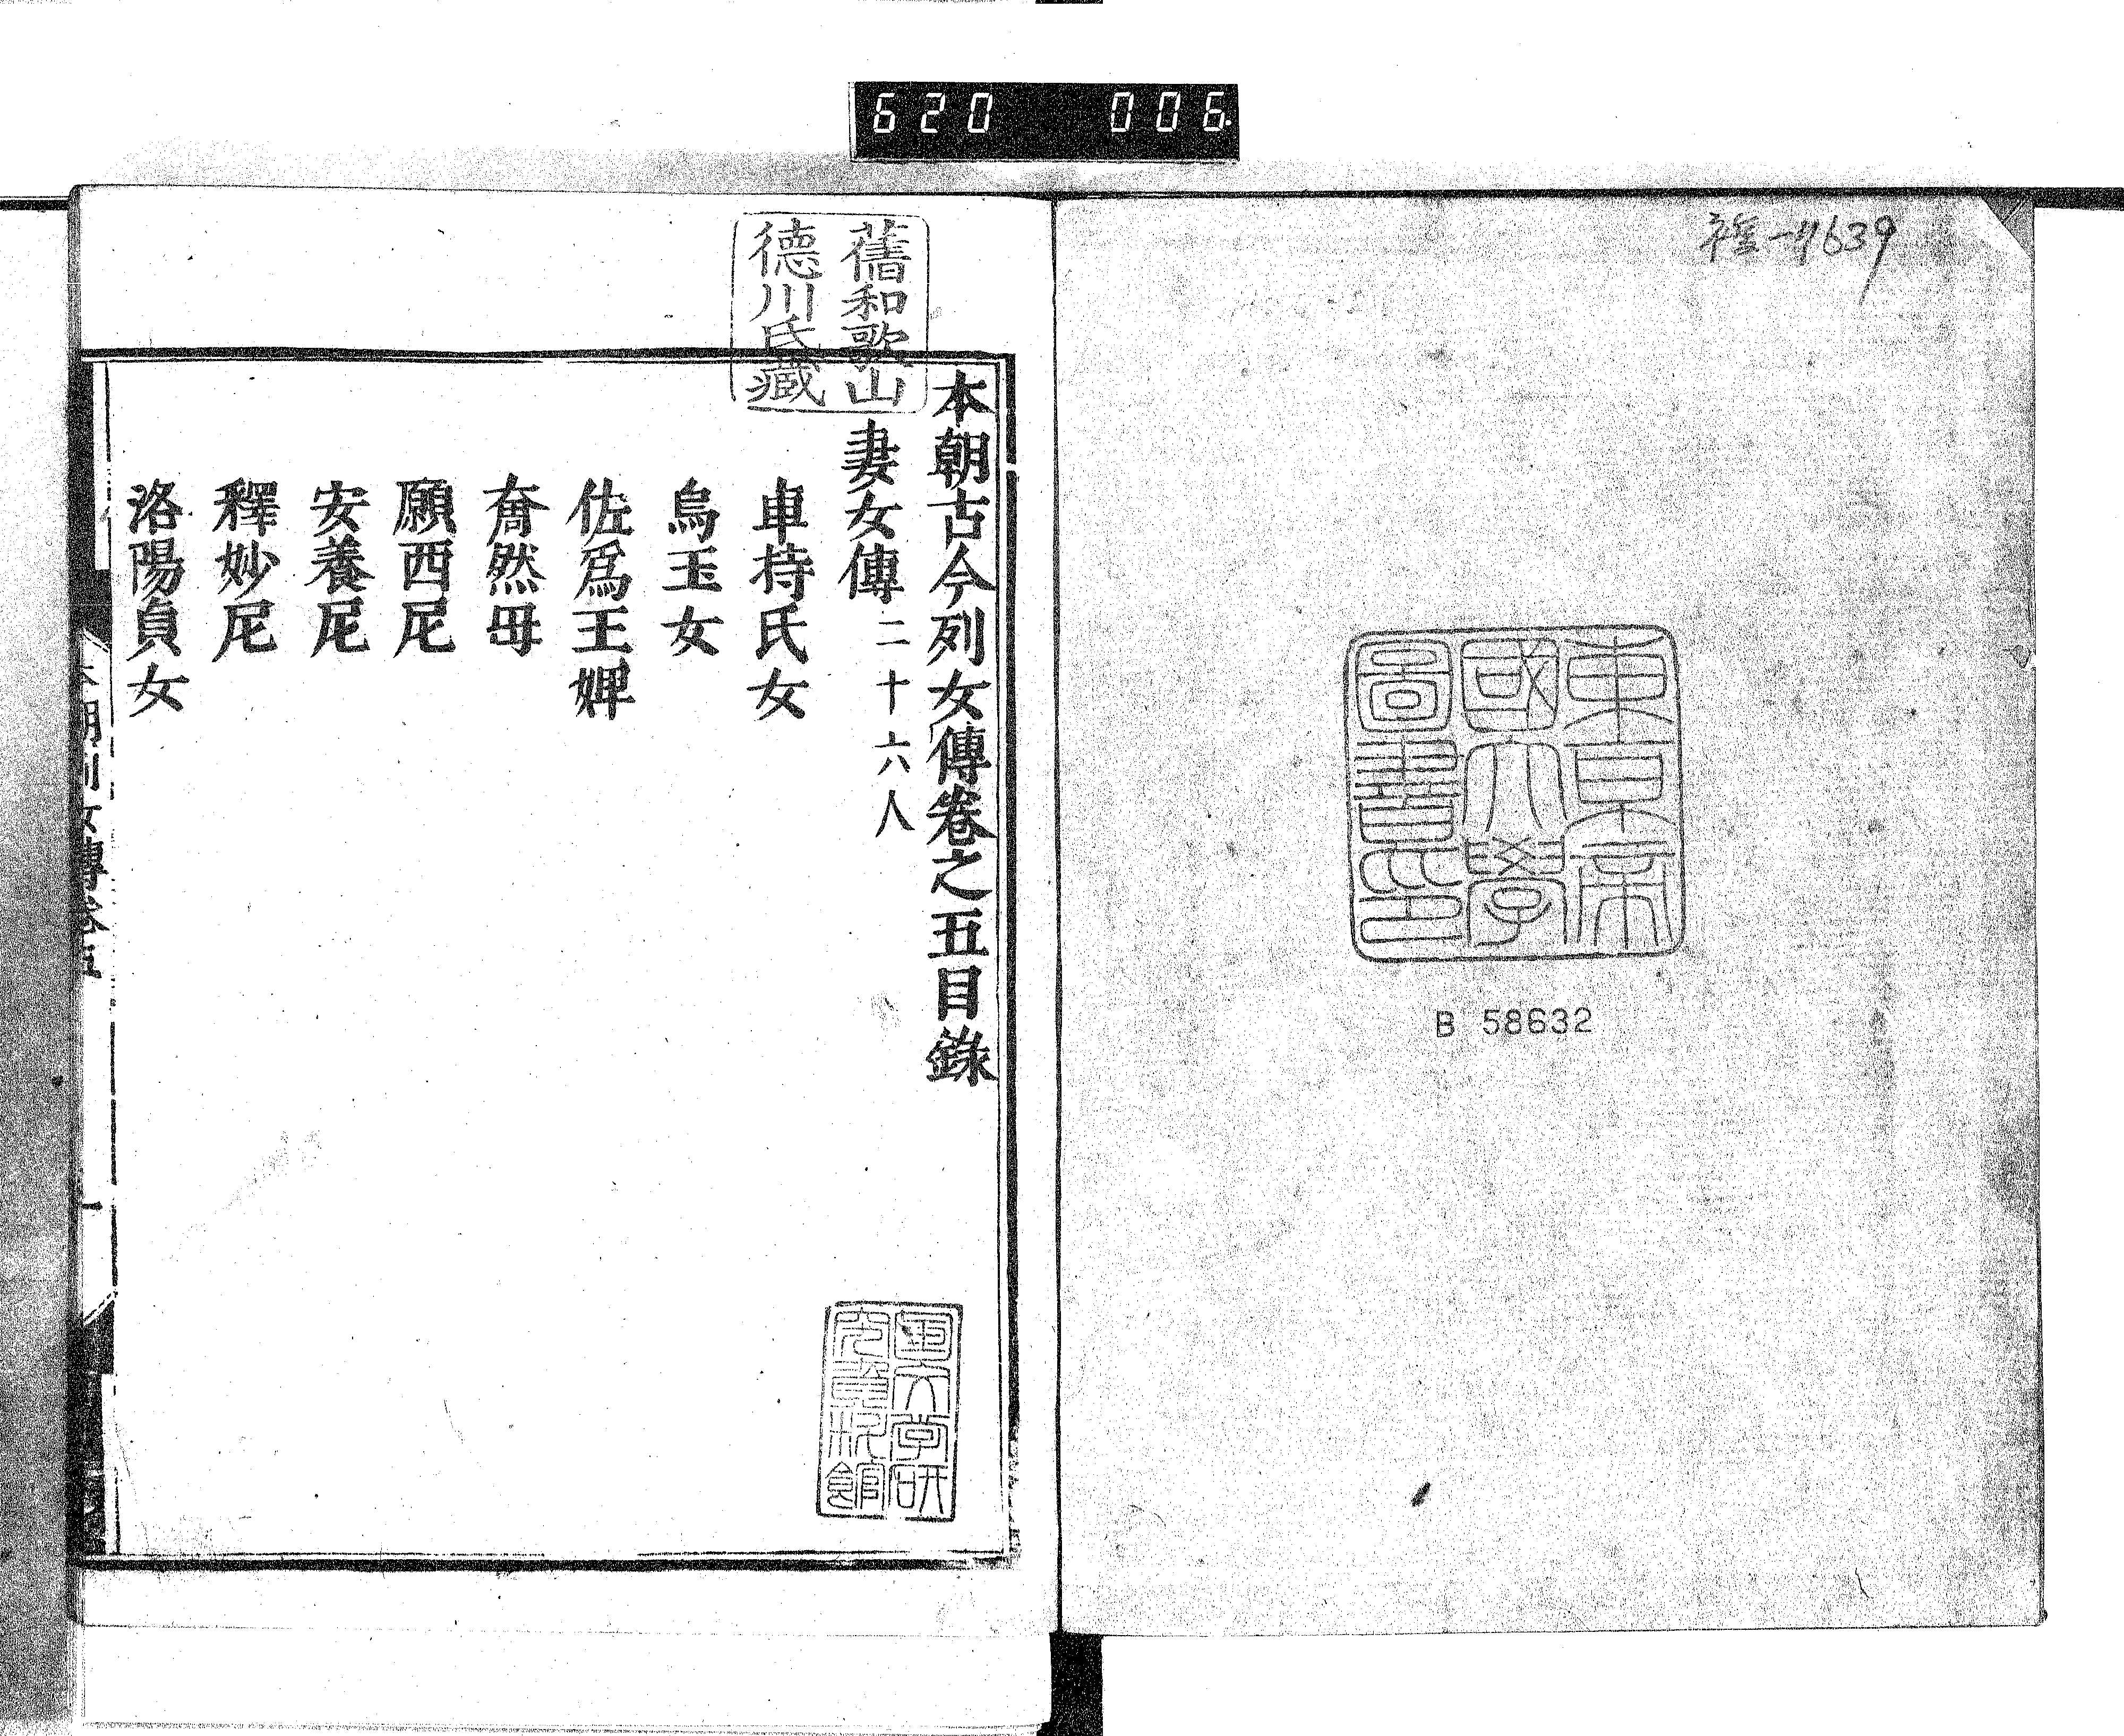 620 006
7639
東京帝
國大學
圖書印
B 58632
舊和歌山
德川氏藏
本朝古今列女傳卷之五目錄
妻女傳二十六人
車持氏女
烏玉女
佐爲王婢
奝然母
願西尼
安養尼
釋妙尼
洛陽貞女
國文学研
究資料館
本朝列女傳卷五
一